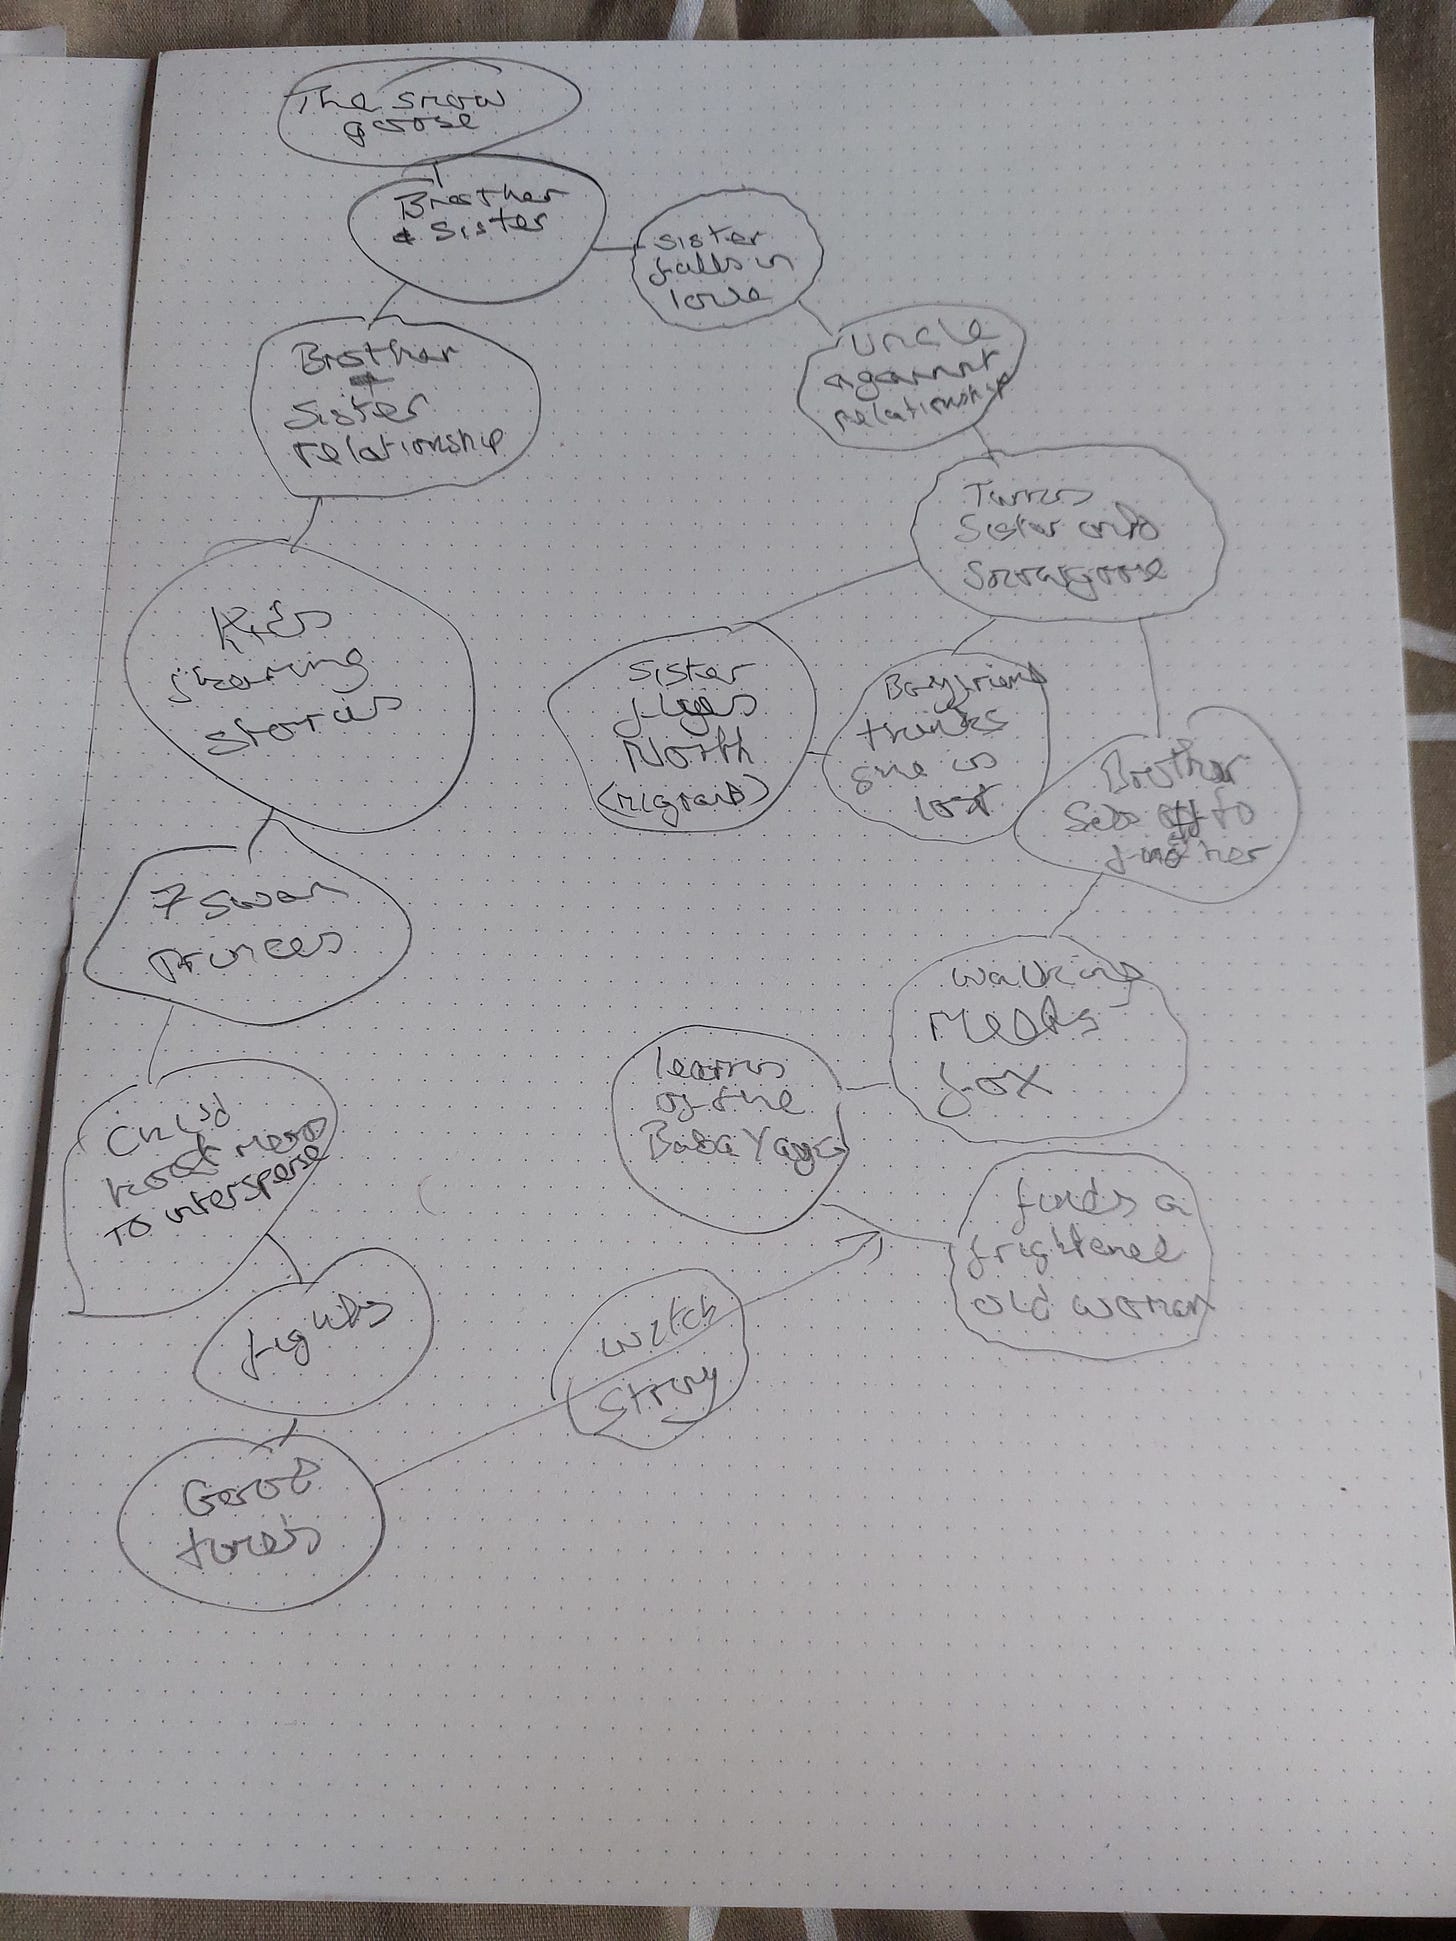 The snow
goose
Brother
& Sister
sister
falls in
love
Uncle
against
relationship
Brother
+
Sister
relationship
Turns
Sister into
Snowgoose
Kids
sharing
stories
Sister
flyes
North
(migrans)
Boyfriend
thinks
she is
lost
Brother
Sets off to
find her
7 swan
Princes
walking
meets
fox
learns
of the
Baba Yaga
Child
hood
to intersperse
finds a
frightened
old woman
fights
witch
Story
Good
times